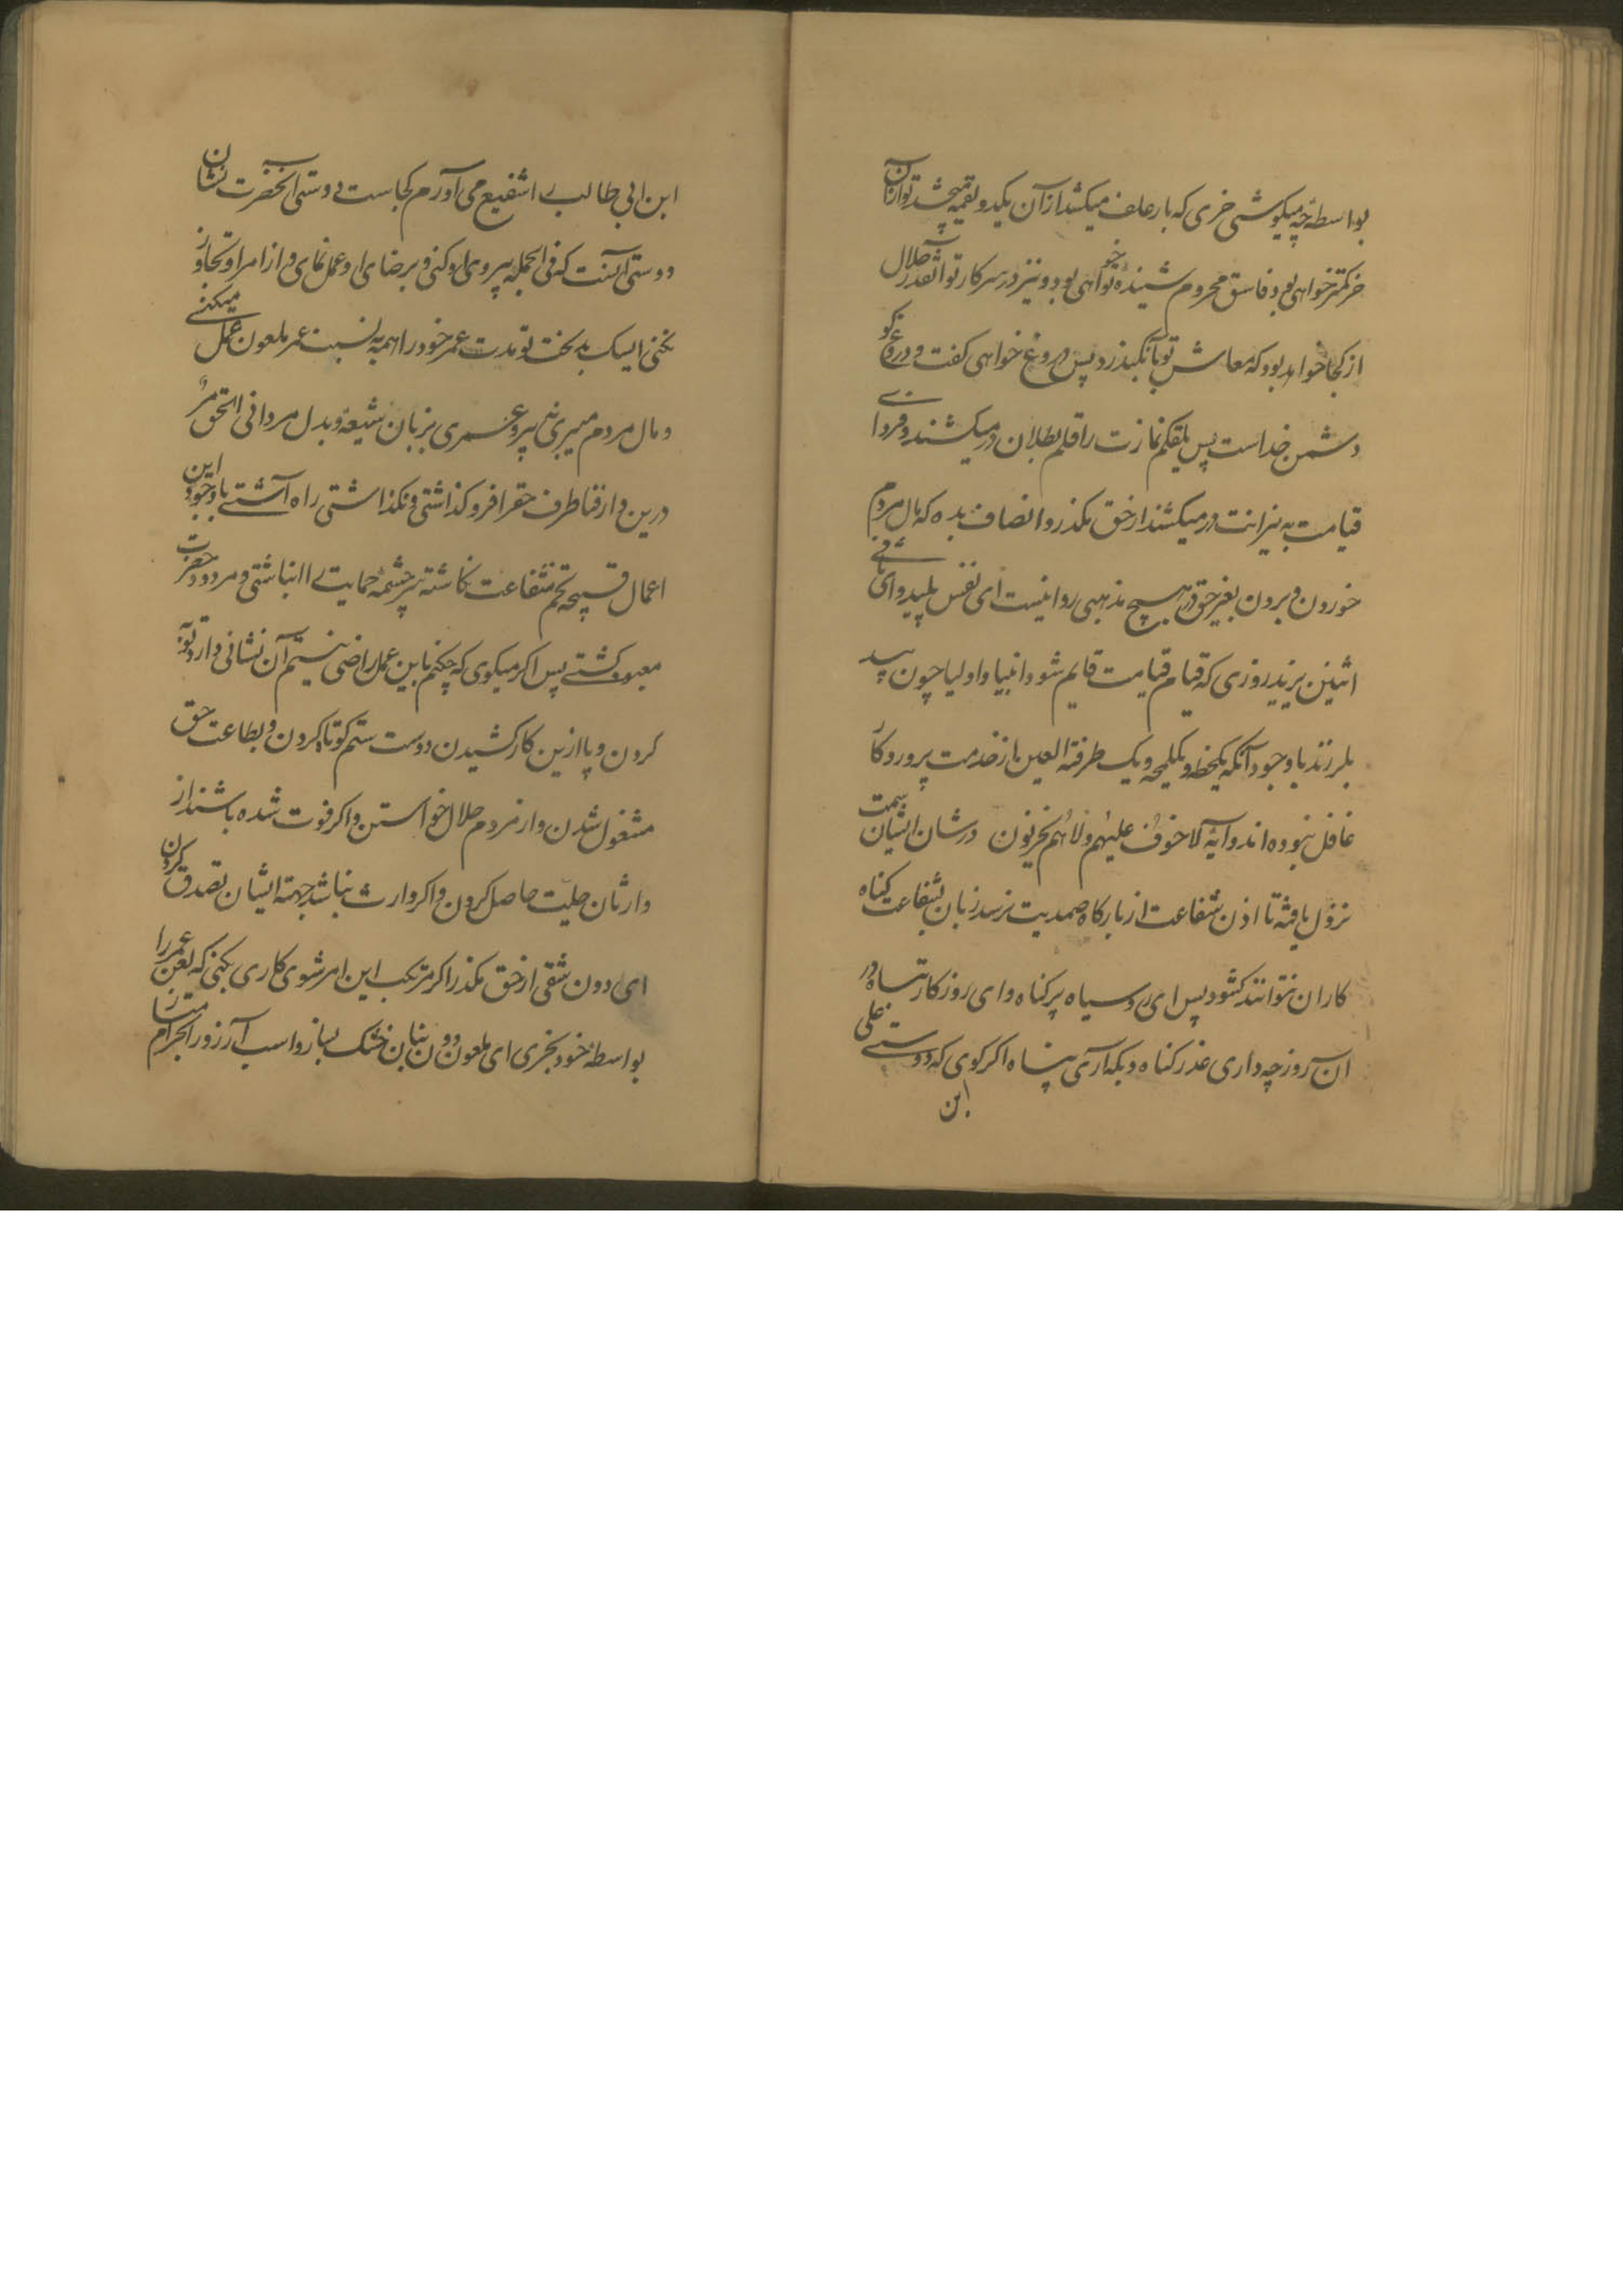 بواسطه چه میکوشی خری که بار علف میکشد از آن یکدو لقمه میچشد تو از آن
خر کمتر خواهی بود و فاسق محروم شنیده خواهی بود و نیز در سر کار تو آنقدر حلال
از کجا خواهد بود که معاش تو بآن بگذرد پس دروغ خواهی کفت و دروغ کو
دشمن خداست پس یقلم نمازت را قلم بطلان در میکشند و فردا
قیامت به نیرانت در میکشند از حق مکذر و انصاف بده که مال مردم
خوردن و بردن بغیر حق در هیچ مذهبی روا نیست ای نفس پلید و ای
اثنین یزید روزی که قیام قیامت قایم شود و انبیا و اولیا چون بید
بلرزند با وجود آنکه یکحظه و یکلمحه و یک طرفة العین از خدمت پروردکار
غافل نبوده اند و آیه لا خوف علیهم ولا هم یحزنون در شان ایشان سمت
نزول یافته تا اذن شفاعت از بارکاه صمدیت نرسد زبان بشفاعت کناه
کاران نتوانند کشود پس ای رو سیاه پر کناه و ای روزکار تباه در
آن روز چه داری عذر کناه و بکه آری پناه اکر کوی که دوستی علی
ابن
ابن ابی طالب را شفیع می آورم کجاست دوستی آنحضرت نشان
دوستی آنست که فی الجمله پیروی او کنی و برضای او عمل نمای و از امر او تجاوز
نکنی ای سک بدبخت تو مدت عمر خود را همه بسنت عمر ملعون عمل میکنی
و مال مردم میبری پیرو عمری بزبان شیعه و بدل مردانی الحق مر
درین وار فنا طرف حق را فرو کذاشتی و نکذاشتی راه آشتی با وجود این
اعمال قبیحه تخم شفاعت ناکاشته سر چشمه حمایت را انباشتی و مردود حضرت
معبود کشتی پس اکر میکوی که چکنم باین عمل راضی نیستم آن نشانی دارد توبه
کردن و پا ازین کار کشیدن و دست ستم کوتاه کردن و بطاعت حق
مشغول شدن و از مردم حلالی خواستن و اکر فوت شده باشند از
وارثان حلیت حاصل کردن و اکر وارث نباشد جهة ایشان تصدق کردن
ای دون شقی از حق مکذر اکر مرتکب این امر شوی کاری بکنی که لعن عمر را
بواسطه خود بخری ای ملعون دون بنان خشک بساز و اسب آرزو را بحرام متاز